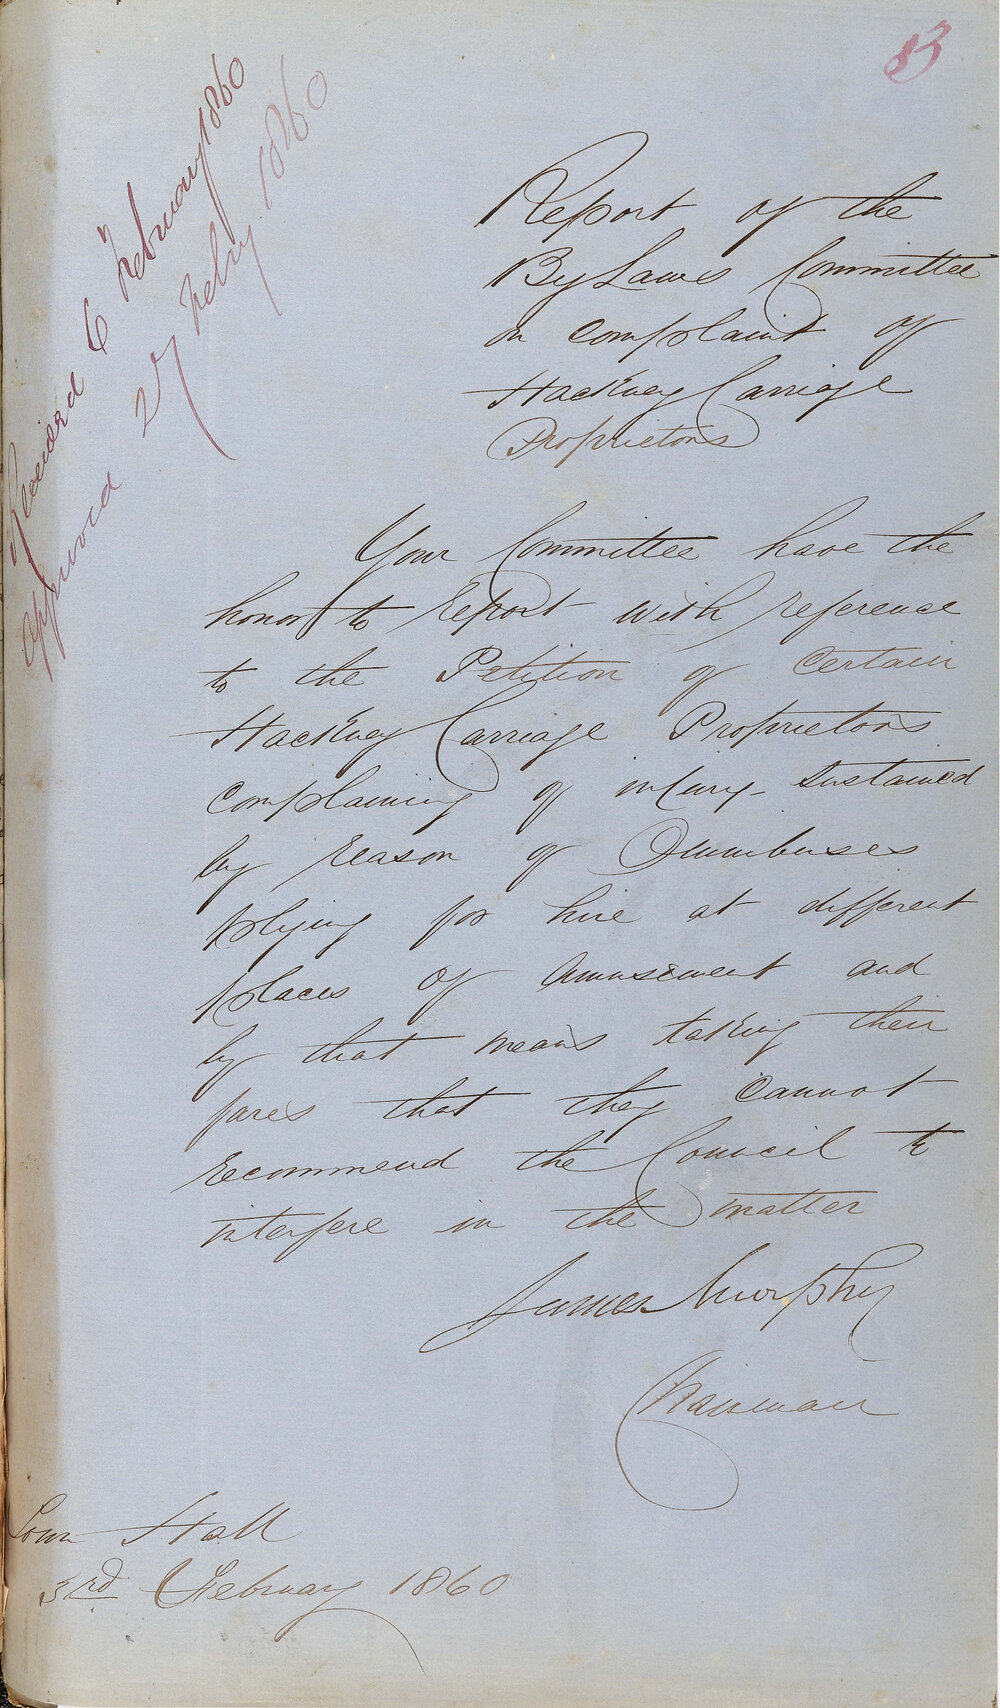 83
Received 6 February 1860
Approved 27 Feby 1860
Report of the
By Laws Committee
on complaint of
Hackney Carriage
Proprietors
Your Committee have the
honor to report with reference
to the Petition of certain
Hackney Carriage Proprietors
complaining of injury sustained
by reason of Omnibuses
plying for hire at different
places of amusement and
by that means taking their
fares that they cannot
recommend the Council to
interfere in the matter
James Murphy
Chairman
Town Hall
3rd February 1860